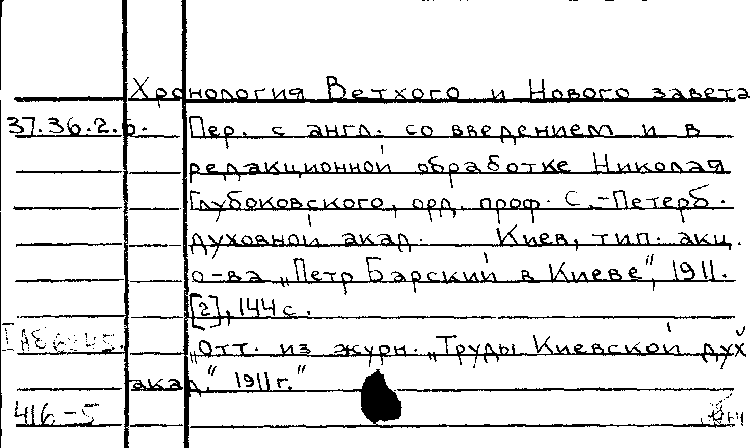 Хронология Ветхого и Нового завета
37.36.2.6. Пер. с англ. со введением и в
редакционной обработке Николая
Глубоковского, орд. проф. С.-Петерб.
духовной акад. Киев, тип. акц.
о-ва „Петр Барский в Киеве", 1911.
[2], 144 с.
„Отт. из журн. „Труды Киевской дух.
акад." 1911 г."
416-5